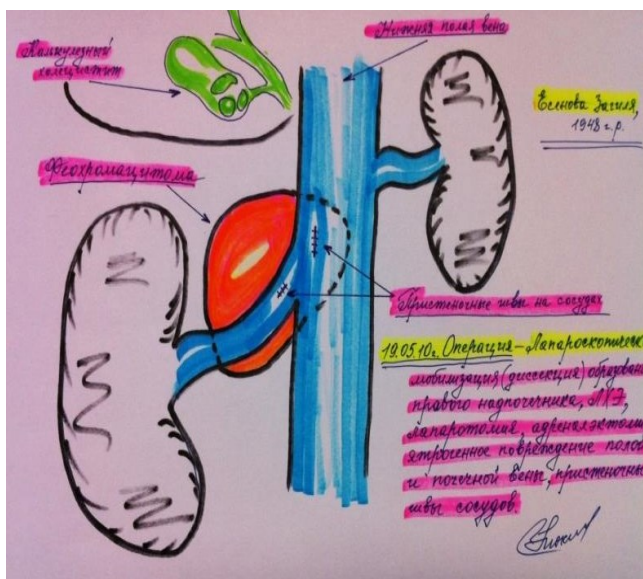 Калкулезный
холецистит
Нижняя полая вена
Есенова Загиля,
1948 г.р.
Феохромацитома
Пристеночные швы на сосудах
19.05.10г. Операция – Лапароскопическ
мобилизация (диссекция) образован
правого надпочечника, ЛХЭ,
лапаротомия, адреналэктоми
ятрогенное повреждение полой
и почечной вены, пристеночны
швы сосудов.